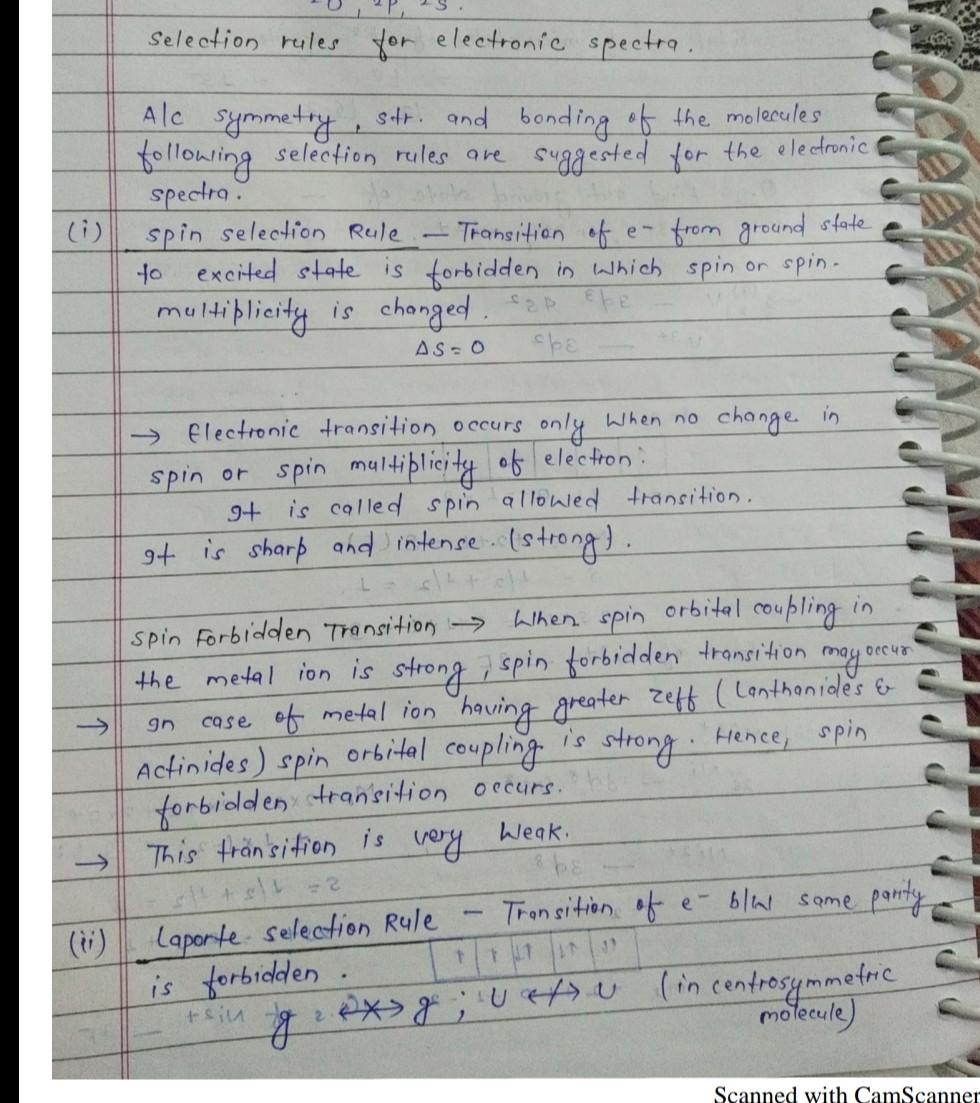 2D, 2P, 2S.
Selection rules for electronic spectra.
A/c symmetry, str. and bonding of the molecules
following selection rules are suggested for the electronic
spectra.
(i) spin selection Rule – Transition of e- from ground state
to excited state is forbidden in which spin or spin-
multiplicity is changed.
ΔS = 0
→ Electronic transition occurs only when no change in
spin or spin multiplicity of electron.
It is called spin allowed transition.
It is sharp and intense. (strong).
Spin Forbidden Transition → When spin orbital coupling in
the metal ion is strong, spin forbidden transition may occur
→ In case of metal ion having greater Zeff (Lanthanides &
Actinides) spin orbital coupling is strong. Hence, spin
forbidden transition occurs.
→ This transition is very weak.
(ii) Laporte selection Rule – Transition of e- b/w same parity
is forbidden.
g <-x-> g ; U <-/-> U (in centrosymmetric
molecule)
Scanned with CamScanner